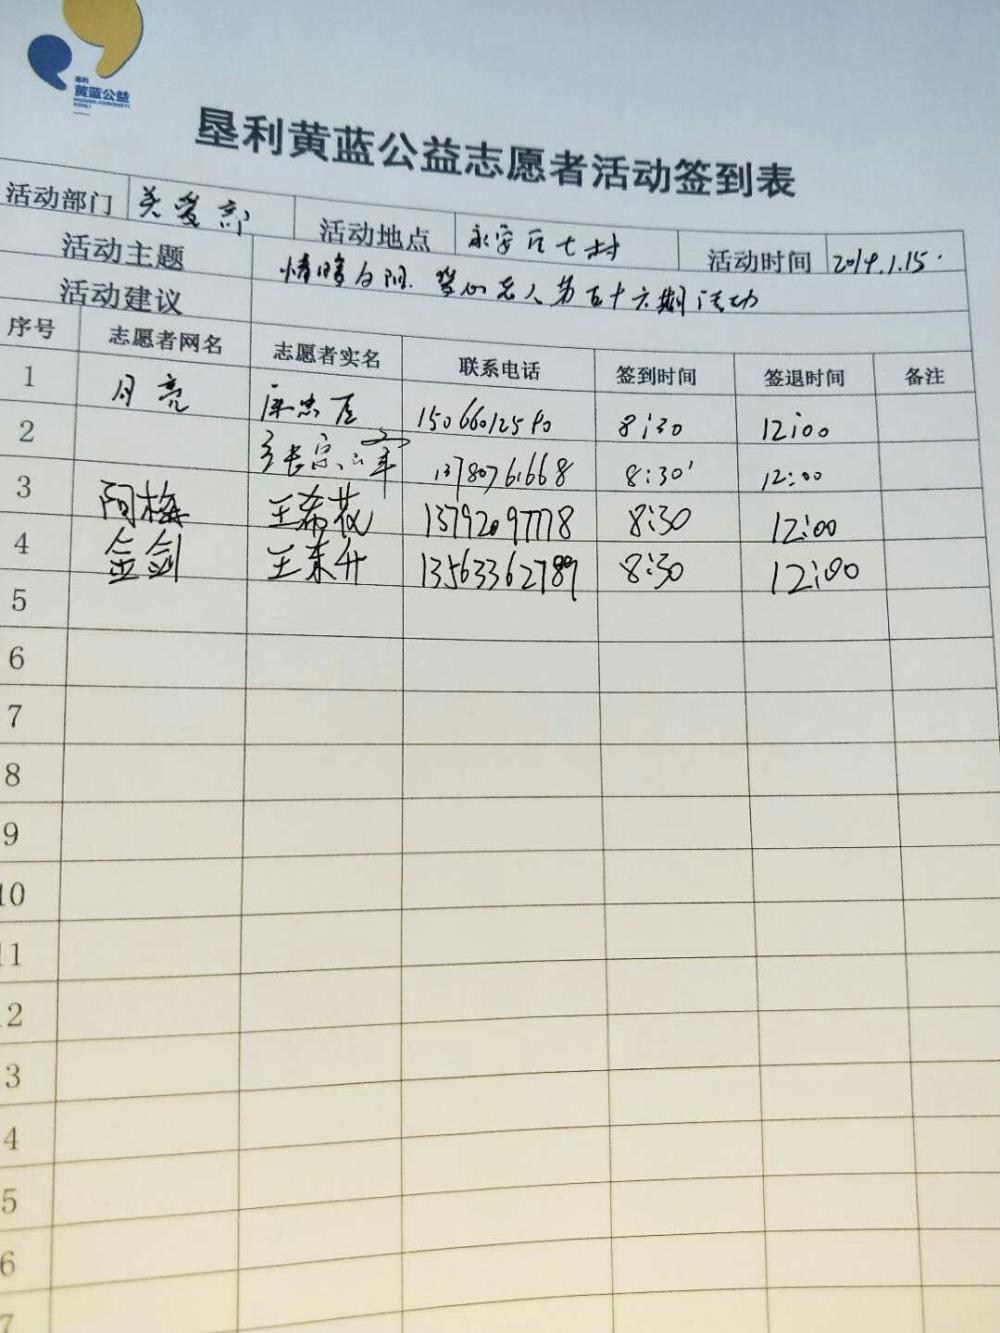 垦利
黄蓝公益
垦利黄蓝公益志愿者活动签到表
活动部门 关爱部 活动地点 永安厂七村 活动时间 2019.1.15.
活动主题 情暖夕阳 老人第五十六期活动
活动建议
序号 志愿者网名 志愿者实名 联系电话 签到时间 签退时间 备注
1 月亮 8:30 12:00
2 13780761668 8:30 12:00
3 阿梅 王希花 13792097778 8:30 12:00
4 金剑 王东升 13563362789 8:30 12:00
5
6
7
8
9
10
11
2
3
4
5
6
7